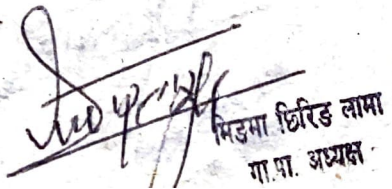 मिङमा छिरिङ लामा
गा.पा. अध्यक्ष